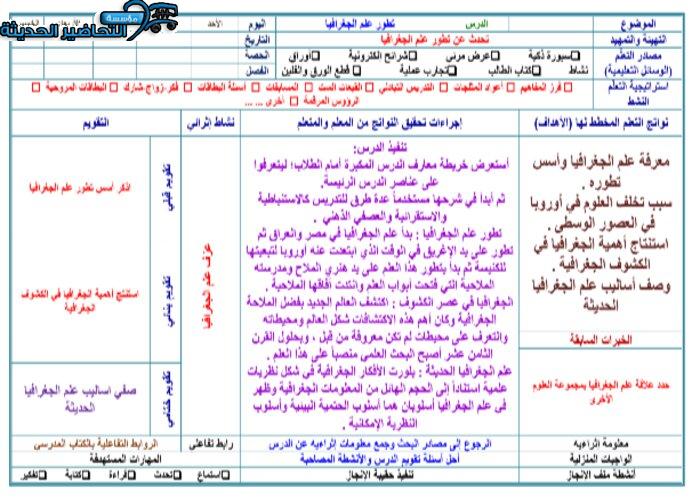 مؤسسة
التحاضير الحديثة
الموضوع
الدرس
تطور علم الجغرافيا
اليوم
الأحد
الخميس
التهيئة والتمهيد
تحدث عن تطور علم الجغرافيا
التاريخ
مصادر التعلم
(الوسائل التعليمية)
سبورة ذكية
عرض مرئي
شرائح الكترونية
أوراق
نشاط
كتاب الطالب
تجارب عملية
قطع الورق والفلين
الحصة
الفصل
استراتيجية التعلم
النشط
فرز المفاهيم
أعواد المثلجات
التدريس التبادلي
القبعات الست
المسابقات
أسئلة البطاقات
فكر-زواج شارك
البطاقات المروحية
الرؤوس المرقمة
أخرى ... ...
نواتج التعلم المخطط لها (الأهداف)
إجراءات تحقيق النواتج من المعلم والمتعلم
نشاط إثرائي
التقويم
معرفة علم الجغرافيا وأسس
تطوره .
سبب تخلف العلوم في أوروبا
في العصور الوسطى .
استنتاج أهمية الجغرافيا في
الكشوف الجغرافية .
وصف أساليب علم الجغرافيا
الحديثة
الخبرات السابقة
حدد علاقة علم الجغرافيا بمجموعة العلوم
الأخرى
تنفيذ الدرس:
أستعرض خريطة معارف الدرس المكبرة أمام الطلاب؛ ليتعرفوا
على عناصر الدرس الرئيسة.
ثم أبدأ في شرحها مستخدماً عدة طرق للتدريس كالاستنباطية
والاستقرائية والعصف الذهني .
تطور علم الجغرافيا : بدأ علم الجغرافيا في مصر والعراق ثم
تطور على يد الإغريق في الوقت الذي ابتعدت عنه أوروبا لتبعيتها
للكنيسة ثم بدأ يتطور هذا العلم على يد هنري الملاح ومدرسته
الملاحية التي فتحت أبواب العلم واتخذت آفاقها الملاحية .
الجغرافيا في عصر الكشوف : اكتشف العالم الجديد بفضل الملاحة
الجغرافية وكان أهم هذه الاكتشافات شكل العالم ومحيطاته
والتعرف على محيطات لم تكن معروفة من قبل ، وبحلول القرن
الثامن عشر أصبح البحث العلمي منصباً على هذا العلم .
علم الجغرافيا الحديثة : بلورت الأفكار الجغرافية في شكل نظريات
علمية استناداً إلى الحجم الهائل من المعلومات الجغرافية وظهر
في علم الجغرافيا أسلوبان هما أسلوب الحتمية البيئية وأسلوب
النظرية الإمكانية .
عرف علم الجغرافيا
تقويم قبلي
اذكر أسس تطور علم الجغرافيا
تقويم بنائي
استنتج أهمية الجغرافيا في الكشوف
الجغرافية
تقويم ختامي
صفي أساليب علم الجغرافيا
الحديثة
معلومة اثرائيه
الرجوع إلى مصادر البحث وجمع معلومات إثرائيه عن الدرس
رابط تفاعلي
الروابط التفاعلية بالكتاب المدرسي
الواجبات المنزلية
أحل أسئلة تقويم الدرس والأنشطة المصاحبة
المهارات المستهدفة
أنشطة ملف الانجاز
تنفيذ حقيبة الإنجاز
استماع
تحدث
قراءة
كتابة
تفكير